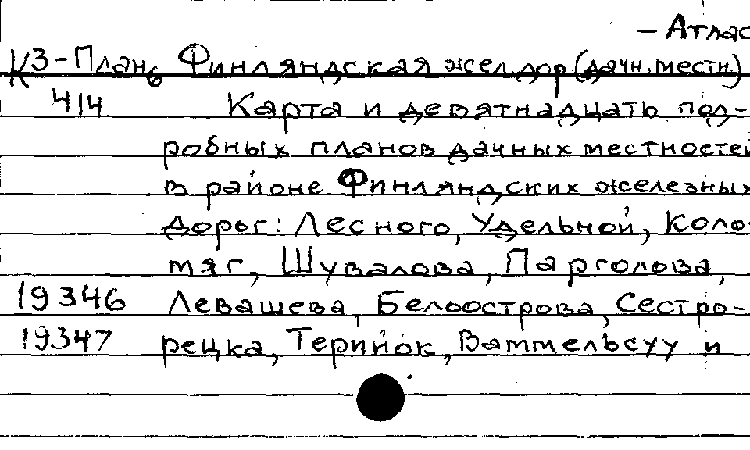 – Атлас
К3-План 6 Финляндская жел.дор (дачн.местн.)
4 14 Карта и девятнадцать под-
робных планов дачных местностей
в районе Финляндских железных
дорог: Лесного, Удельной, Коло-
мяг, Шувалова, Парголова,
19346 Левашева, Белоострова, Сестро-
19347 рецка, Терийок, Ваммельсуу и